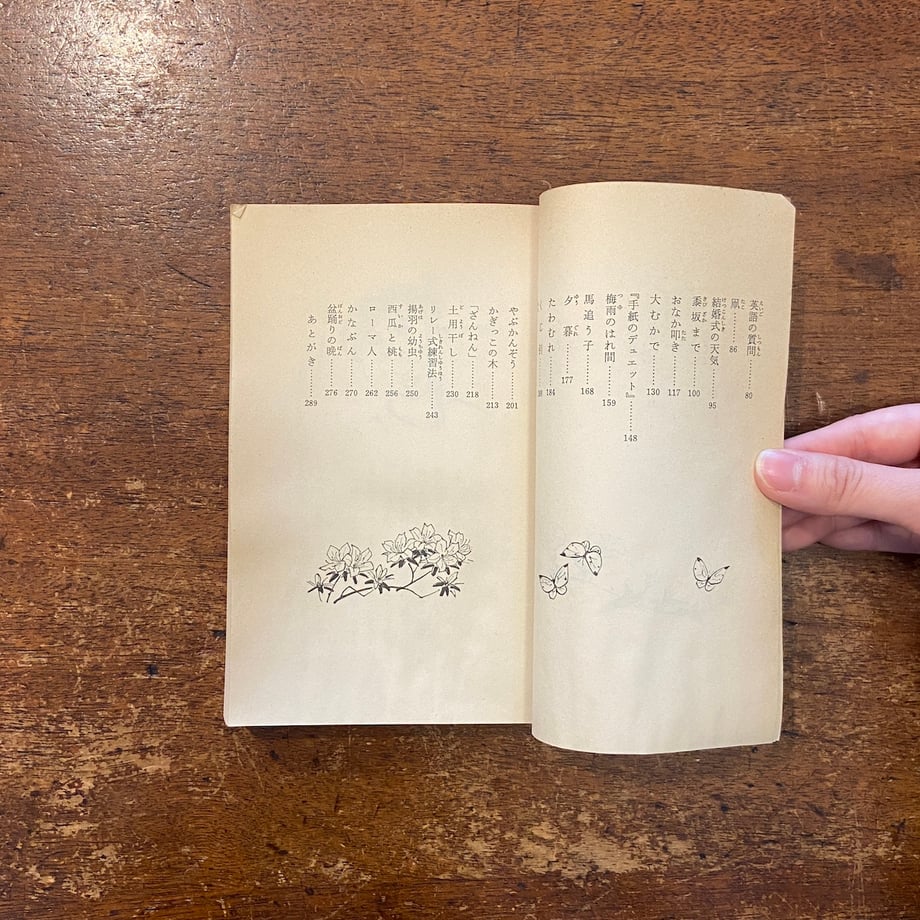 英語の質問……80
凧……86
結婚式の天気……95
黍坂まで……100
おなか叩き……117
大むかで……130
『手紙のデュエット』……148
梅雨のはれ間……159
馬追う子……168
夕暮……177
たわむれ……184
やぶかんぞう……201
かぎっこの木……213
「ざんねん」……218
土用干し……230
リレー式練習法……243
揚羽の幼虫……250
西瓜と桃……256
ローマ人……262
かなぶん……270
盆踊りの晩……276
あとがき……289